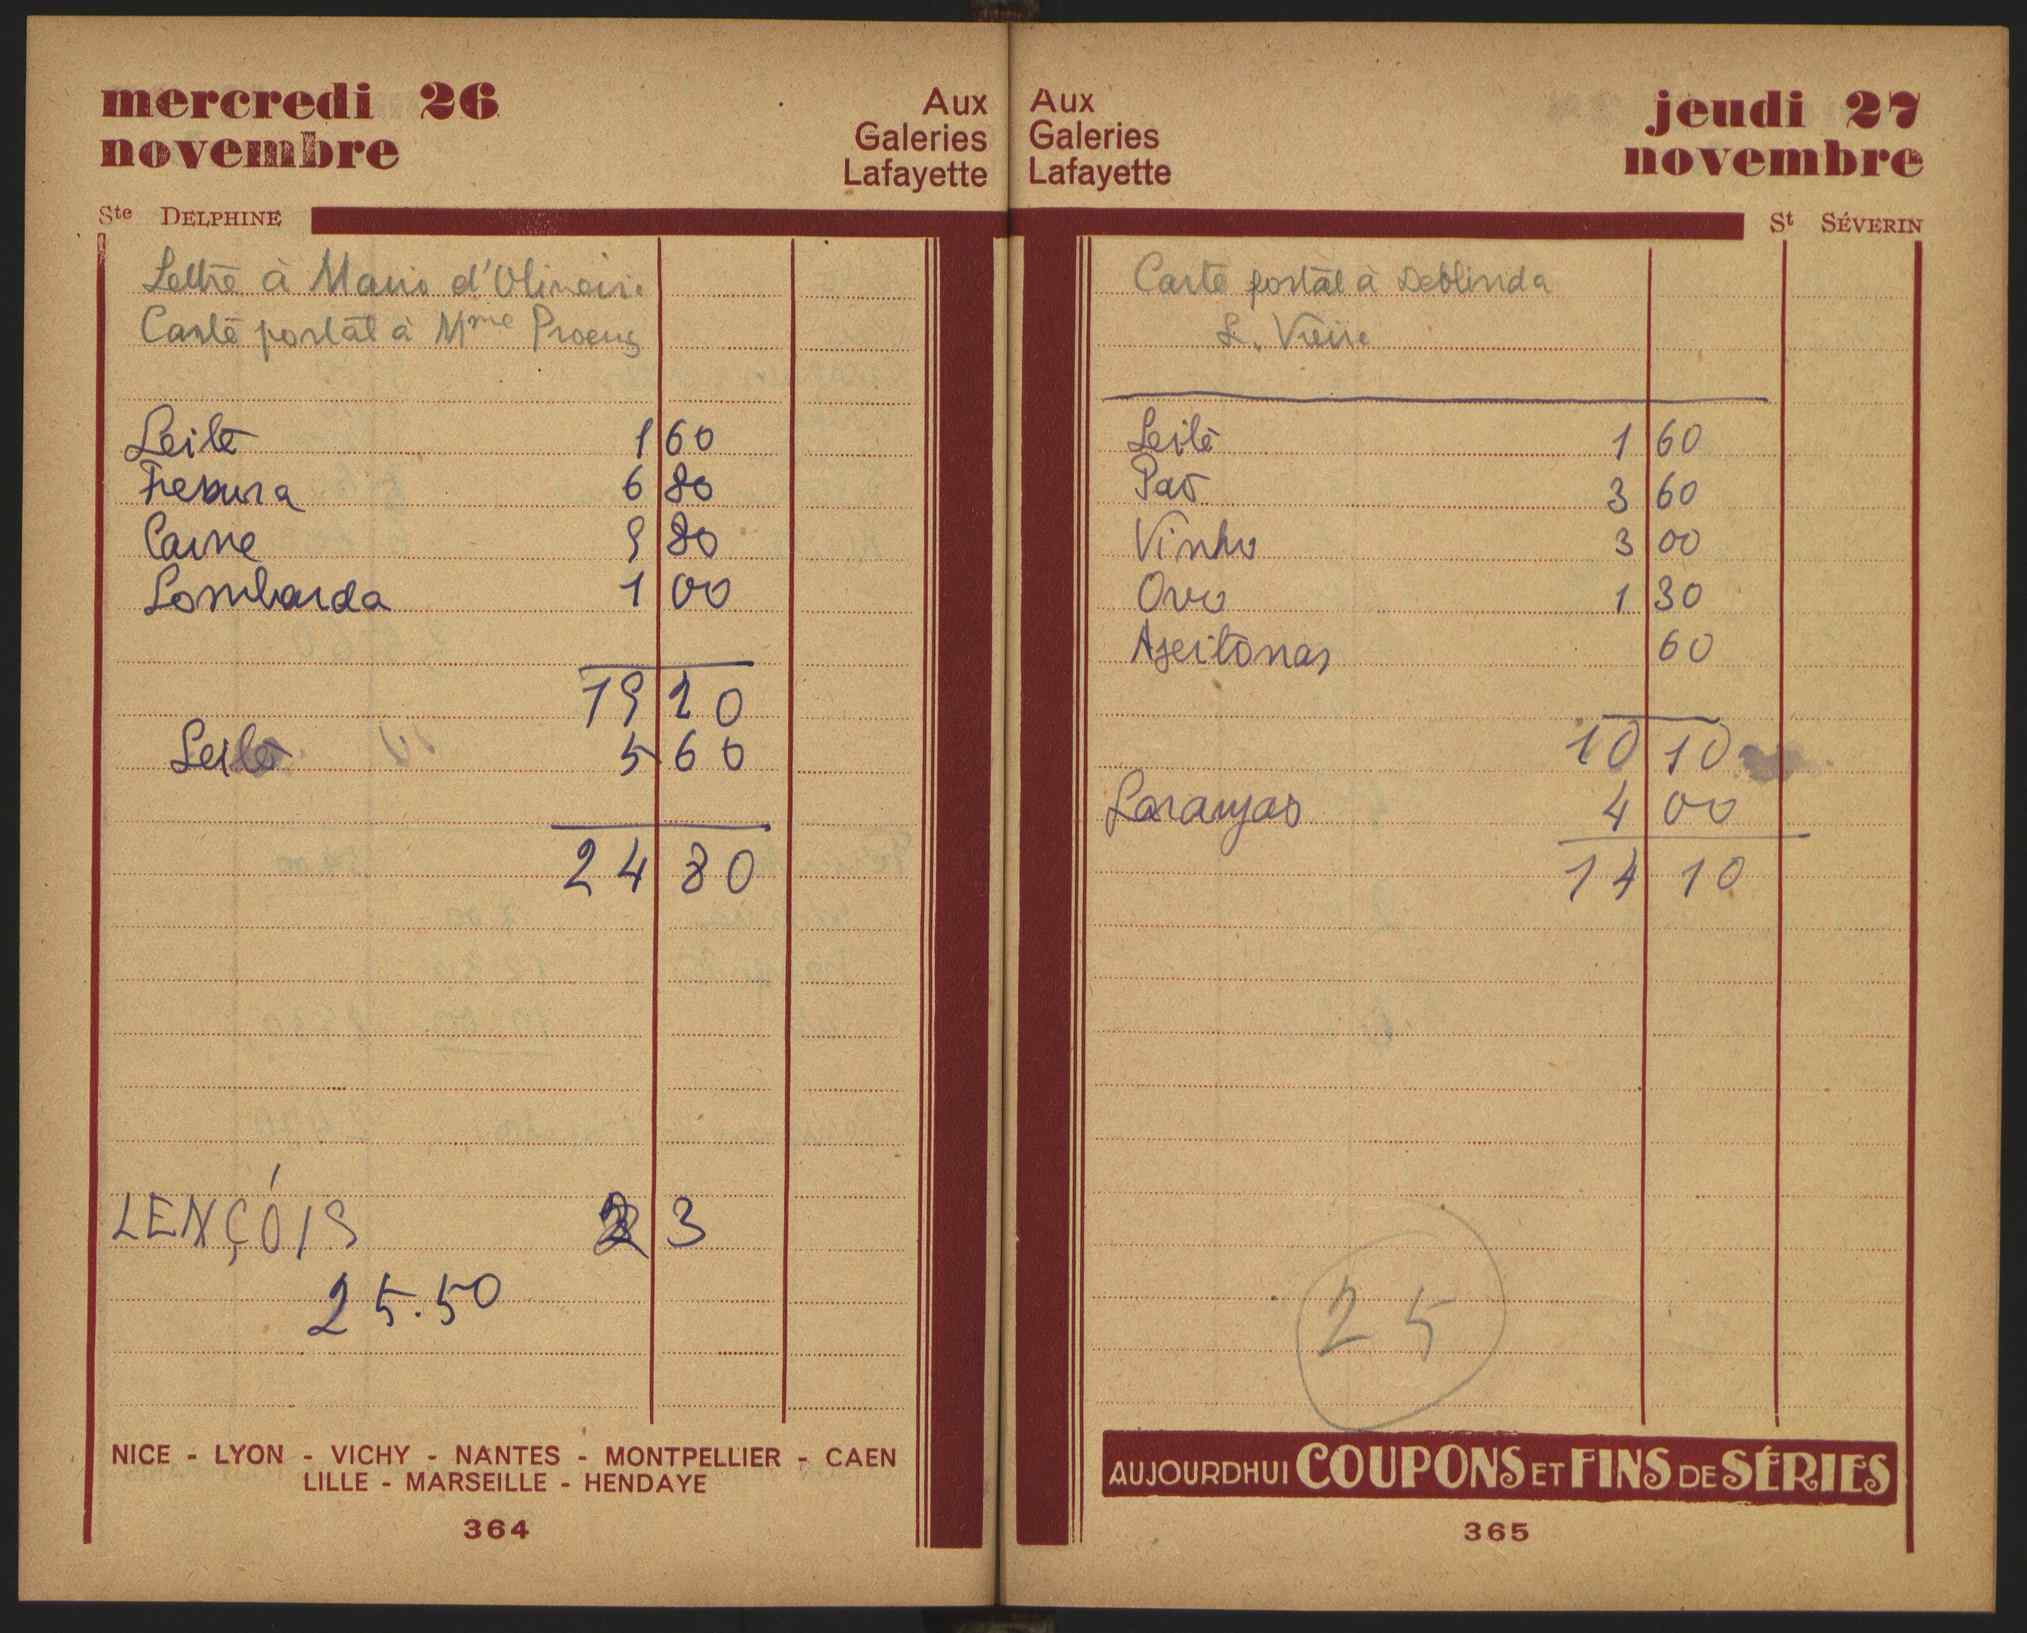 mercredi 26
novembre
Aux
Galeries
Lafayette
Ste DELPHINE
Lettre à Marie d'Oliveira
Carte postal à Mme Proenç
Leite 1 60
Fresura 6 80
Carne 9 80
Lombarda 1 00
19 20
Leite 5 60
24 80
LENÇÓIS 3
25.50
NICE - LYON - VICHY - NANTES - MONTPELLIER - CAEN
LILLE - MARSEILLE - HENDAYE
364
Aux
Galeries
Lafayette
jeudi 27
novembre
St SÉVERIN
Carte postal à Deolinda
L. Vieira
Leite 1 60
Pão 3 60
Vinho 3 00
Ovo 1 30
Azeitonas 60
10 10
Laranjas 4 00
14 10
25
AUJOURDHUI COUPONS ET FINS DE SÉRIES
365